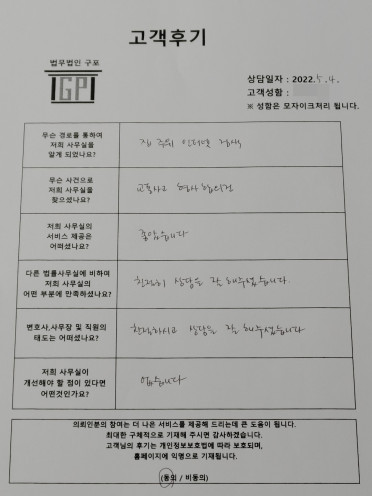 고객후기
법무법인 구포
GP
상담일자 : 2022. 5. 4.
고객성함 :
※ 성함은 모자이크처리 됩니다.
무슨 경로를 통하여
저희 사무실을
알게 되었나요?
집 주위 인터넷 검색
무슨 사건으로
저희 사무실을
찾으셨나요?
교통사고 형사합의건
저희 사무실의
서비스 제공은
어떠셨나요?
좋았습니다
다른 법률사무실에 비하여
저희 사무실의
어떤 부분에 만족하셨나요?
친절히 상담을 잘 해주셨습니다.
변호사,사무장 및 직원의
태도는 어떠셨나요?
친절하시고 상담을 잘 해주셨습니다
저희 사무실이
개선해야 할 점이 있다면
어떤것인가요?
없습니다
의뢰인분의 참여는 더 나은 서비스를 제공해 드리는데 큰 도움이 됩니다.
최대한 구체적으로 기재해 주시면 감사하겠습니다.
고객님의 후기는 개인정보보호법에 따라 보호되며,
홈페이지에 익명으로 기재됩니다.
(동의 / 비동의)